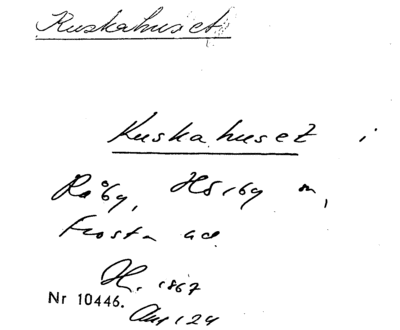 Kuskahuset
Kuskahuset i
Råby, Hörby m,
Frosta
H. 1867
Nr 10446.
124